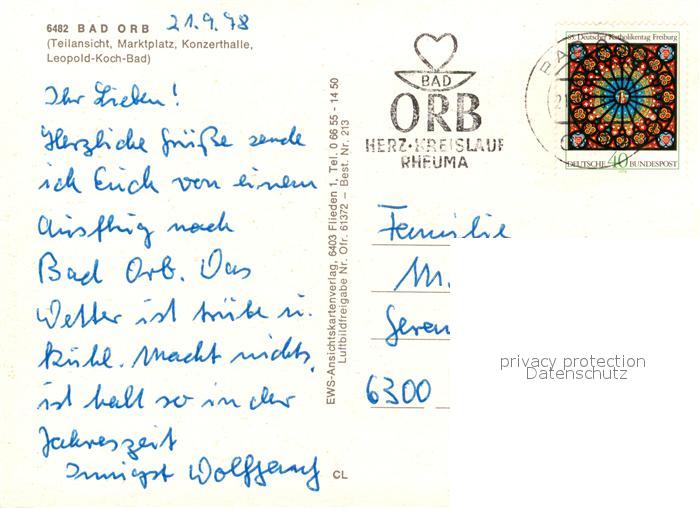 6482 BAD ORB 21.9.78
(Teilansicht, Marktplatz, Konzerthalle,
Leopold-Koch-Bad)
Ihr Lieben!
Herzliche Grüße sende
ich Euch von einem
Ausflug nach
Bad Orb. Das
Wetter ist trübe u.
kühl. Macht nichts,
ist halt so in der
Jahreszeit
Innigst Wolfgang
EWS-Ansichtskartenverlag, 6403 Flieden 1, Tel. 0 66 55 - 14 50
Luftbildfreigabe Nr. Ofr. 61372 – Best. Nr. 213
CL
BAD
ORB
HERZ·KREISLAUF
RHEUMA
85. Deutscher Katholikentag Freiburg
DEUTSCHE 40 BUNDESPOST
Familie
M.
6300
privacy protection
Datenschutz